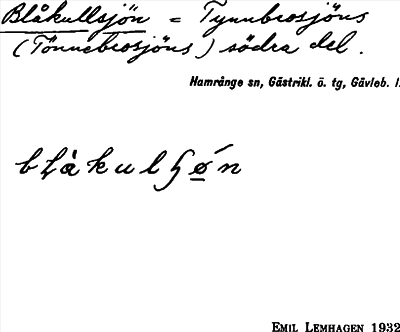 Blåkullsjön = Tynnbrosjöns
(Tönnebrosjöns) södra del.
Hamrånge sn, Gästrikl. ö. tg, Gävleb. l.
Emil Lemhagen 1932